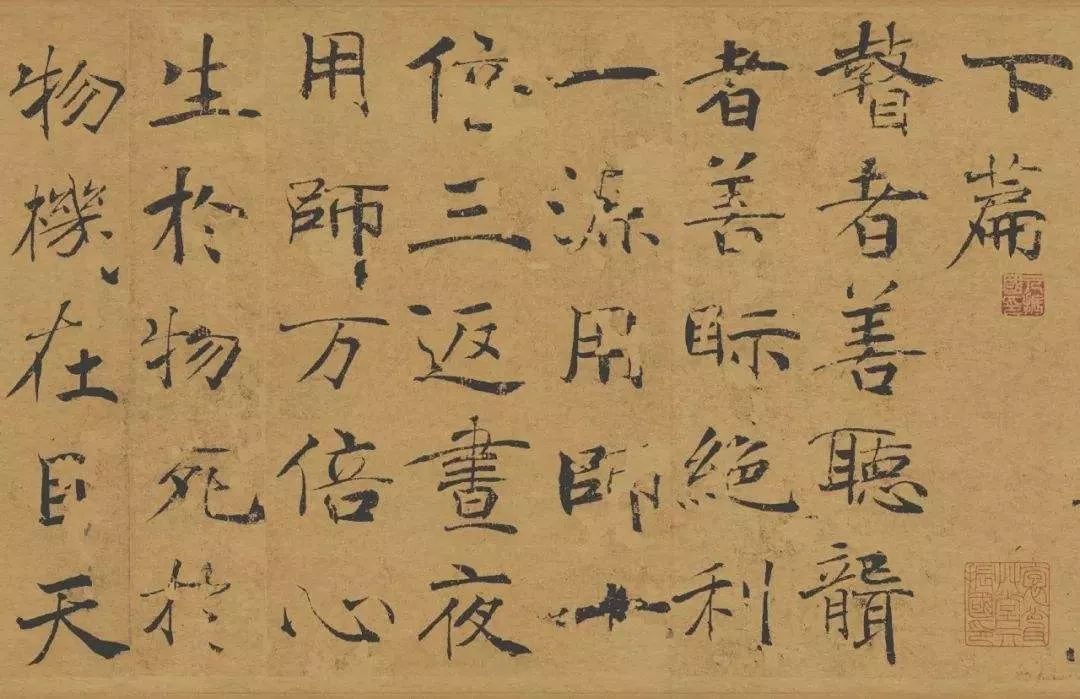 下篇
瞽者善聽聾
者善眎絕利
一源用師十
倍三返晝夜
用師万倍心
生於物死於
物機在目天